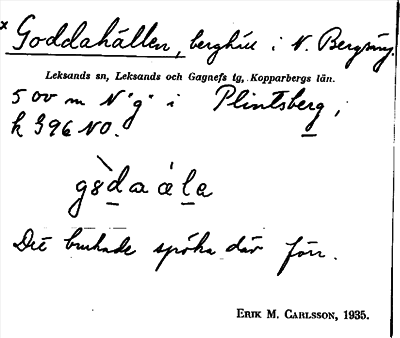 × Goddahällen, berghäll i N. Bergsäng.
Leksands sn, Leksands och Gagnefs tg, Kopparbergs län.
500 m N "g" i Plintsberg,
k 396 NO.
Det brukade spöka där förr.
ERIK M. CARLSSON, 1935.